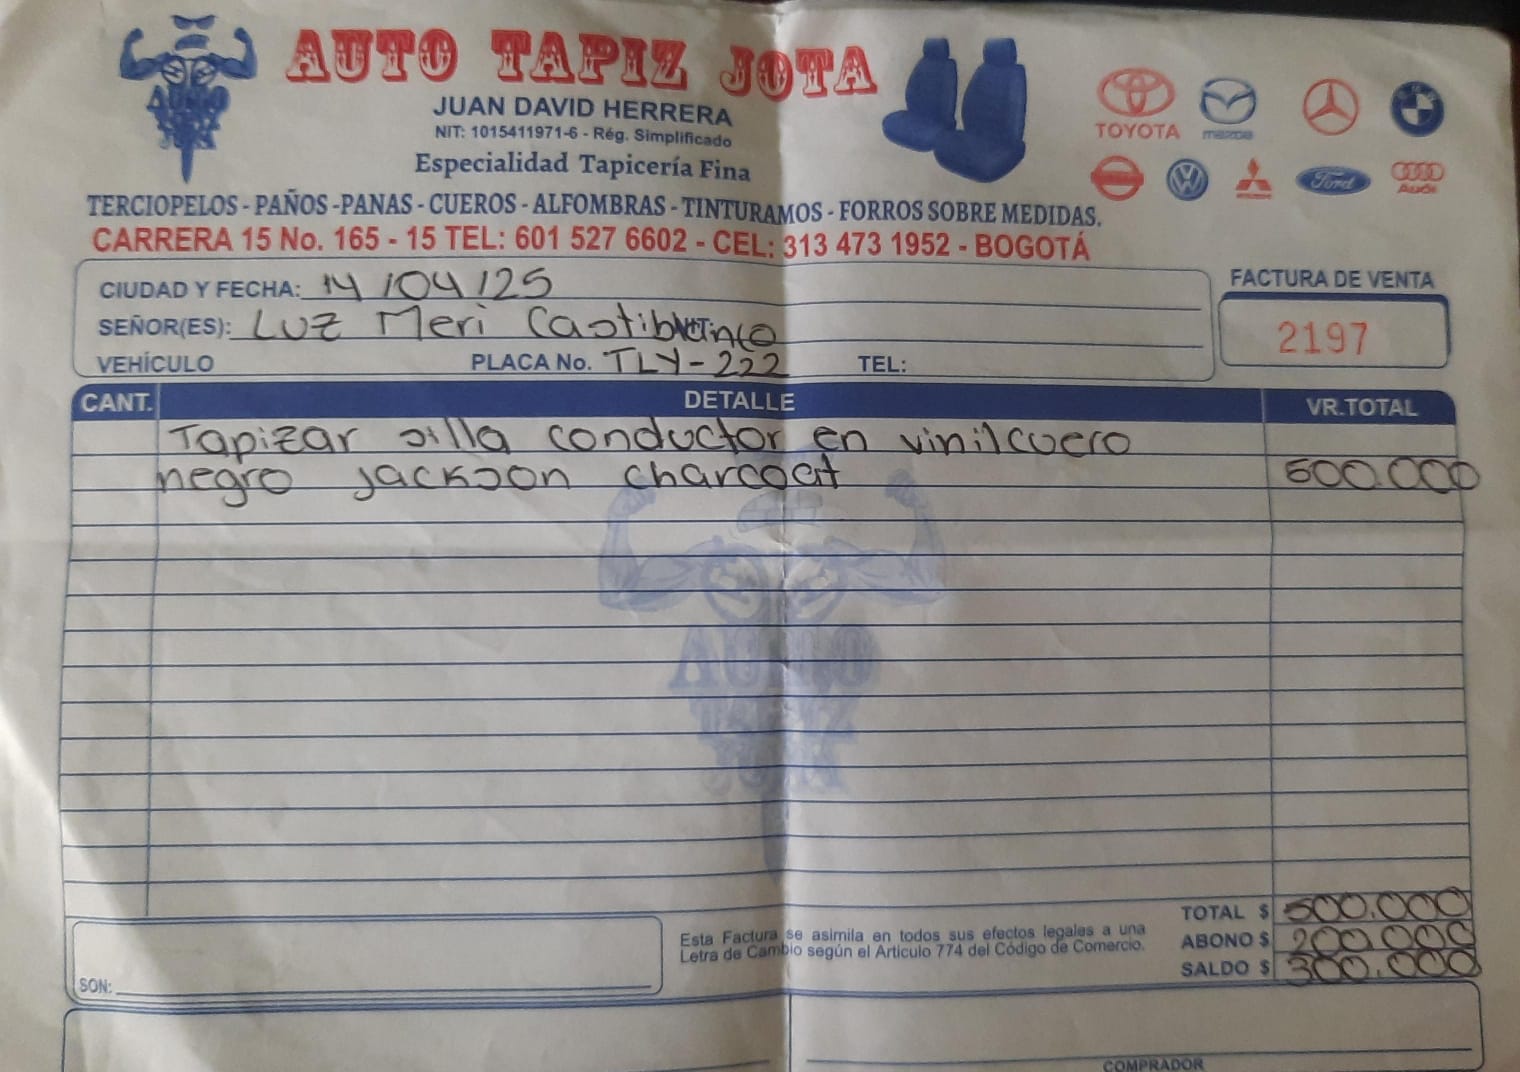 AUTO TAPIZ JOTA
JUAN DAVID HERRERA
NIT: 1015411971-6 - Rég. Simplificado
Especialidad Tapicería Fina
TERCIOPELOS - PAÑOS -PANAS - CUEROS - ALFOMBRAS - TINTURAMOS - FORROS SOBRE MEDIDAS.
CARRERA 15 No. 165 - 15 TEL: 601 527 6602 - CEL: 313 473 1952 - BOGOTÁ
TOYOTA mazda
Ford Audi
CIUDAD Y FECHA: 14/04/25
SEÑOR(ES): Luz Meri Castiblanco
VEHÍCULO PLACA No. TLY-222 TEL:
FACTURA DE VENTA
2197
CANT. DETALLE VR.TOTAL
Tapizar silla conductor en vinilcuero
negro Jackson charcoat 500.000
TOTAL $ 500.000
Esta Factura se asimila en todos sus efectos legales a una
Letra de Cambio según el Articulo 774 del Código de Comercio.
ABONO $ 200.000
SALDO $ 300.000
SON:
COMPRADOR